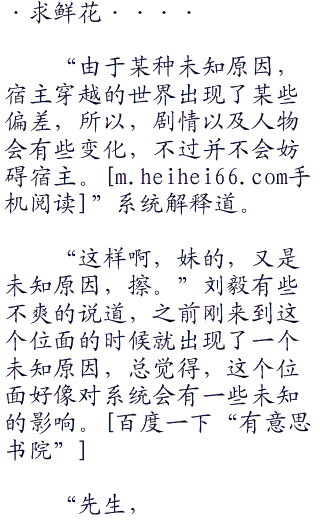 ·求鲜花····
“由于某种未知原因，
宿主穿越的世界出现了某些
偏差，所以，剧情以及人物
会有些变化，不过并不会妨
碍宿主。[m.heihei66.com手
机阅读]”系统解释道。
“这样啊，妹的，又是
未知原因，擦。”刘毅有些
不爽的说道，之前刚来到这
个位面的时候就出现了一个
未知原因，总觉得，这个位
面好像对系统会有一些未知
的影响。[百度一下“有意思
书院”]
“先生，